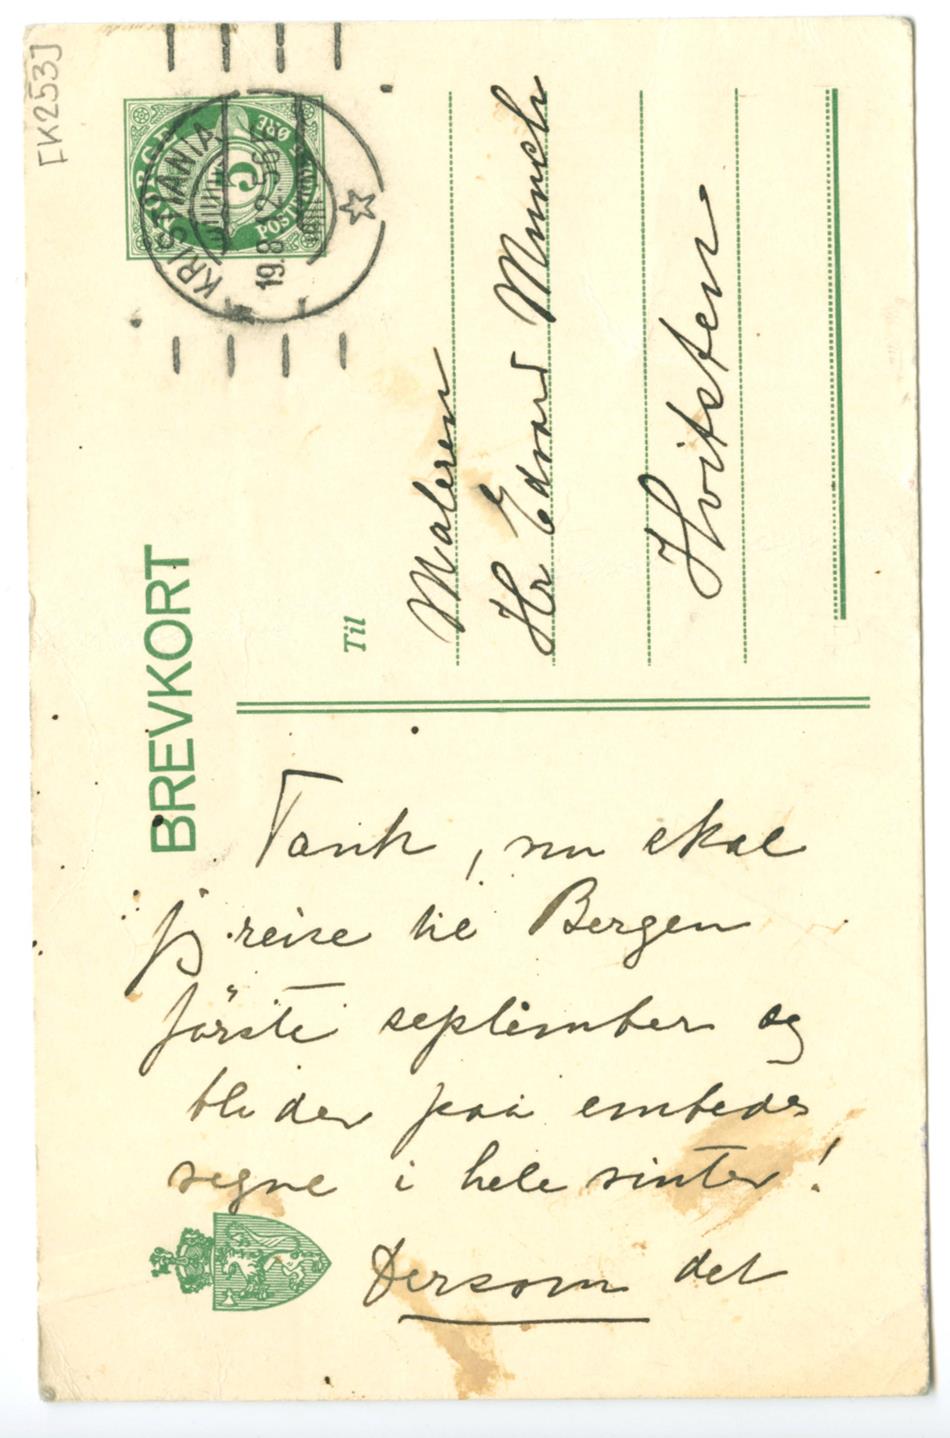 [K253]
NORGE
5
ØRE
POSTFRIM
KRISTIANIA
19.8.12.5-6E
BREVKORT
Til
Maleren
Hr Edvard Munch
Hvitsten
Tænk, nu skal
jeg reise til Bergen
første september og
bli der paa embeds
vegne i hele vinter!
Dersom det